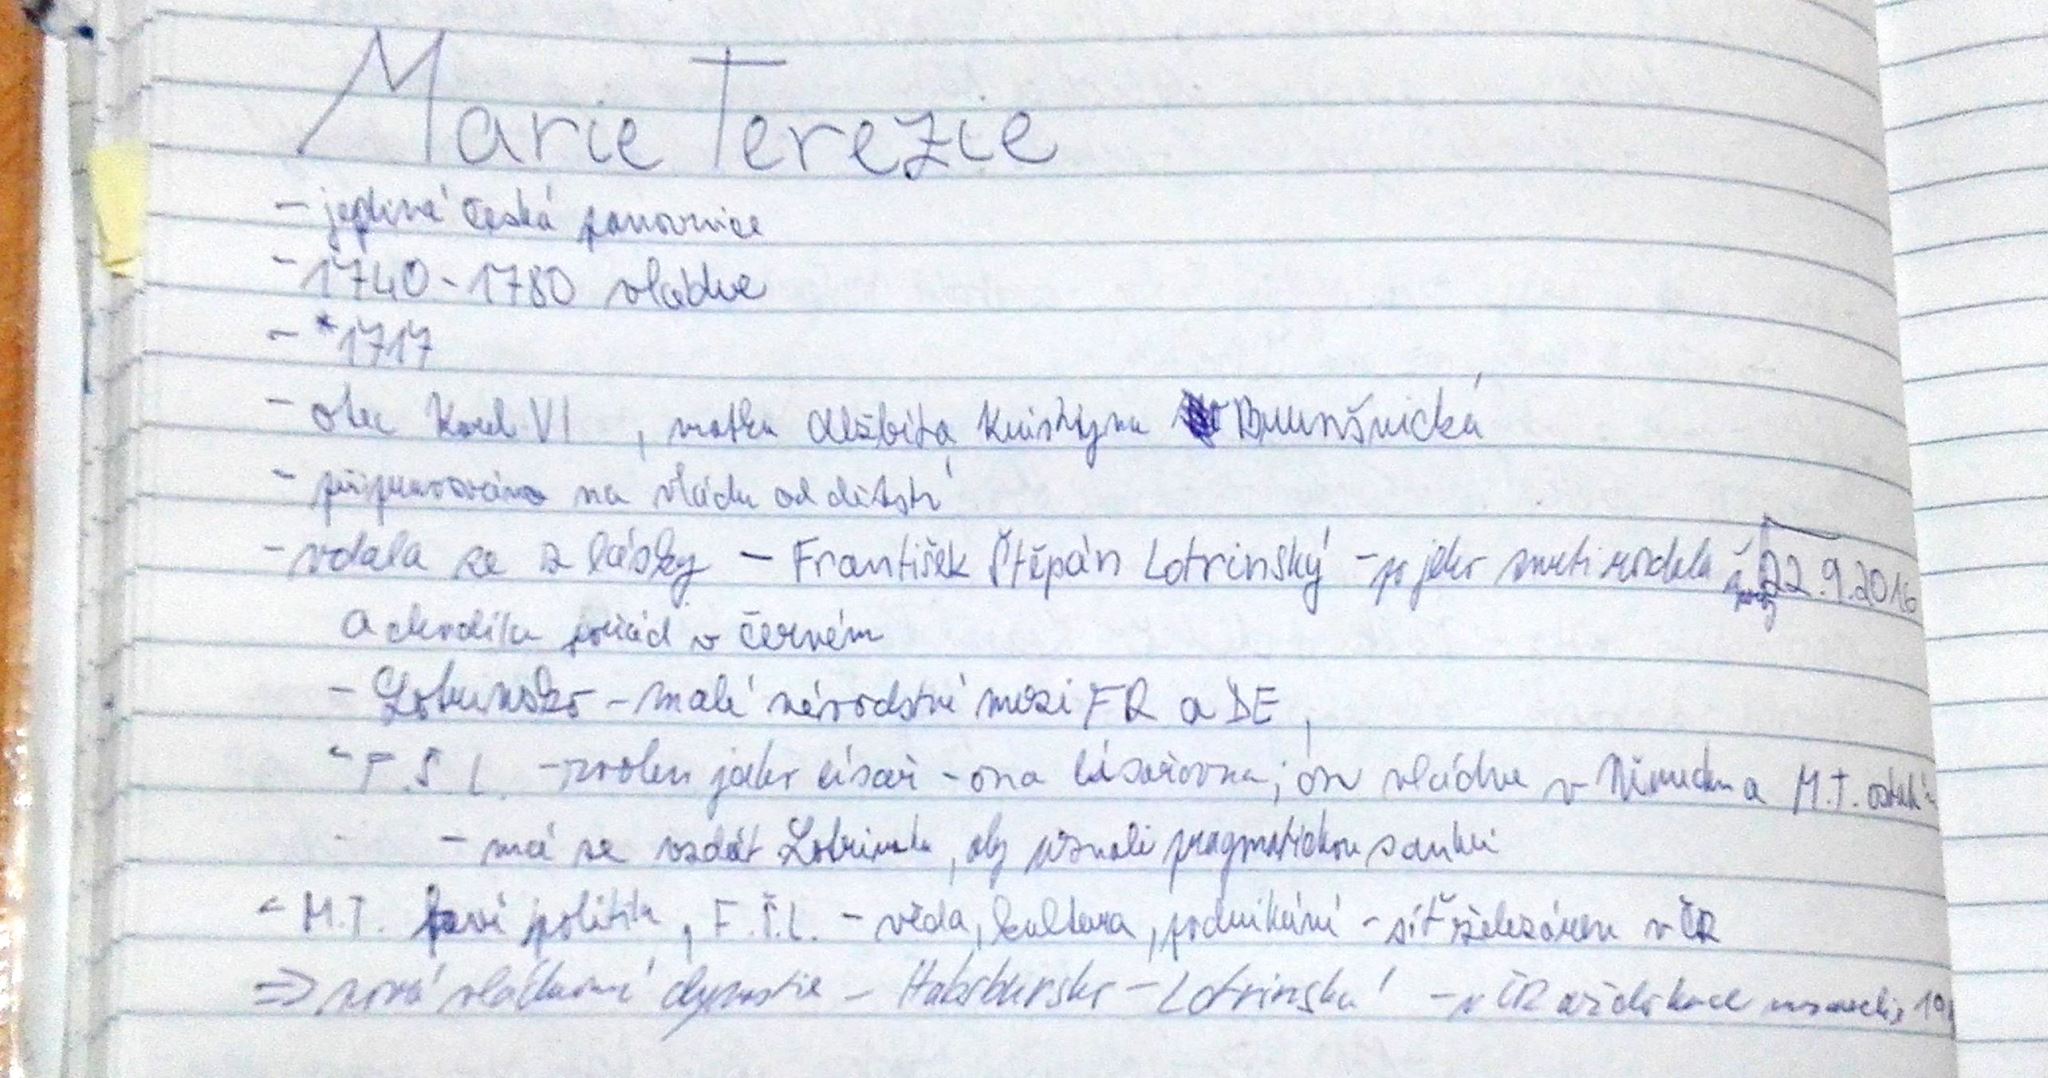 Marie Terezie
- jediná česká panovnice
- 1740-1780 vládne
- *1717
- otec Karel VI , matka Alžběta Kristýna Brunšvická
- připravována na vládu od dětství
- vdala se z lásky – František Štěpán Lotrinský – po jeho smrti nosila 22.9.2016
a chodila pořád v černém
- Lotrinsko – malé mezi FR a DE,
- F. Š. L. – zvolen jako císař – ona císařovna; on vládne v Německu a M.T.
- má se vzdát Lotrinska, aby uznali pragmatickou sankci
- M.T. politik, F.Š.L. – věda, kultura, podnikání – síť železáren v ČR
⇒ nová dynastie – Habsbursko-Lotrinská – v ČR až do konce